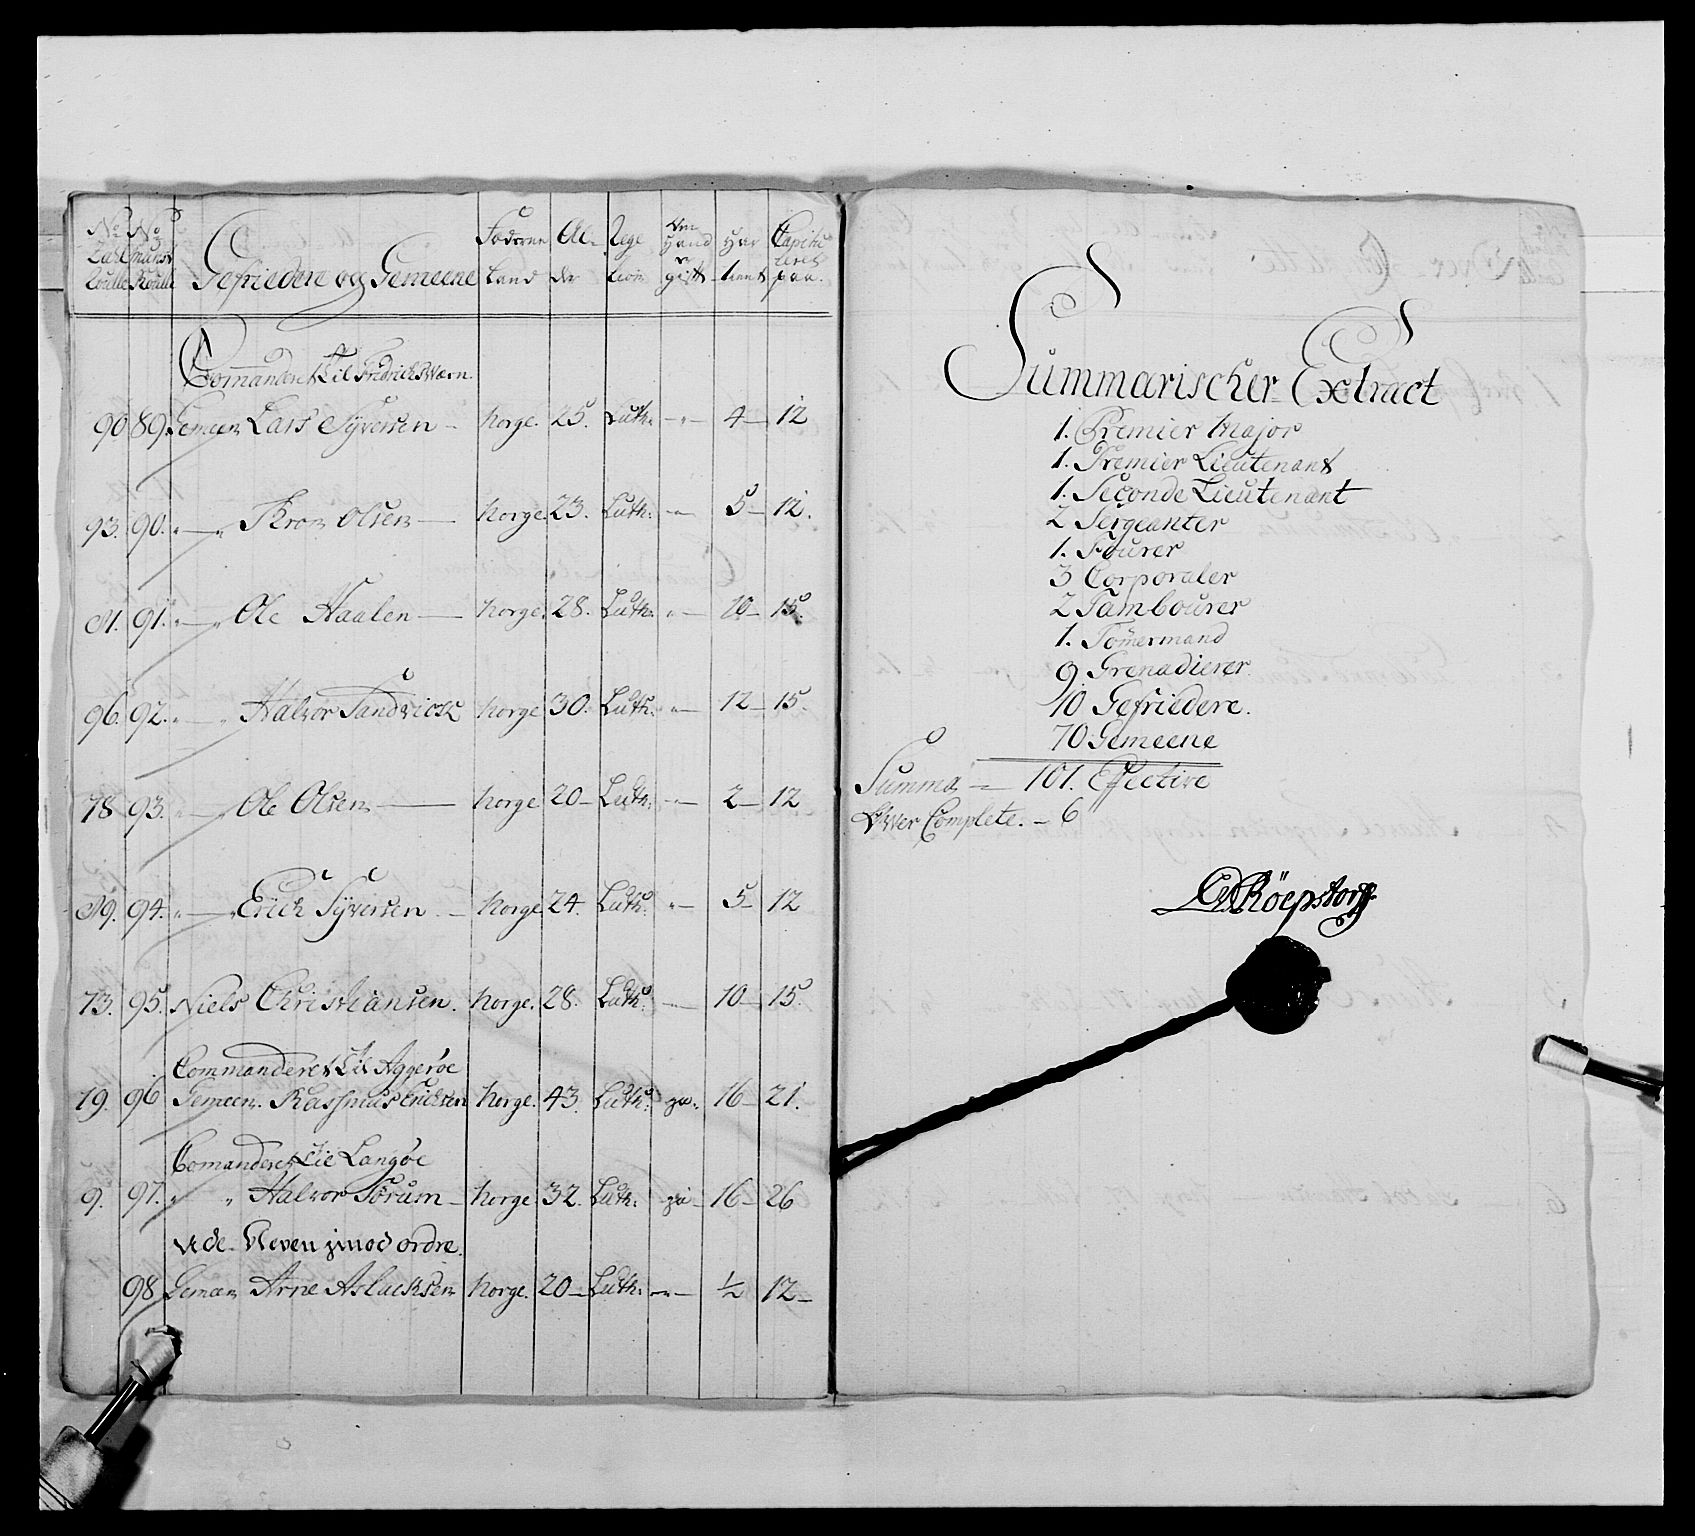 No No Gefriedere og Gemeene Föderne Land Al- der Rege- lion Har tient Capitu- leret paa.
Comanderet Til Fredrichswærn.
90 89. Gemeen Lars Syversen - Norge. 25. Luth: -"- 4- 12
93. 90. " — " Olsen — Norge. 23. Luth: -"- 5- 12.
91. " — " Ole Haalen — Norge. 28. Luth: " - 10- 15.
96. 92. " — " Halvor Sandvick Norge 30. Luth: -"- 12- 15.
78 93. " — " Ole Olsen — Norge 20- Luth: -"- 2- 12
94. " — " Erich Syversen. - Norge 24. Luth: "- 5- 12
73. 95. Niels Christiansen. Norge. 28. Luth: -"- 10- 15.
Commanderet Til Aggeröe
19. 96 Gemeen. Rasmus Erichsen Norge. 43. Luth: 16- 21.
Comanderet Til Langöe
9. 97. " " Halvor Sörum - Norge. 32. Luth: 16- 26
ordre.
98 Gemeen Arne Aslachsen Norge. 20- Luth: -"- ½ 12-
Summarischer Extract
1. Premier Major
1. Premier Lieutenant
1. Seconde Lieutenant
2 Sergeanter
1. Fourer
3 Corporaler
2 Tambourer
1. Tömermand
9. Grenadierer
10 Gefriedere.
70 Gemeene
Summa — 101. Effective
Over Complete. - 6
Röepstorff